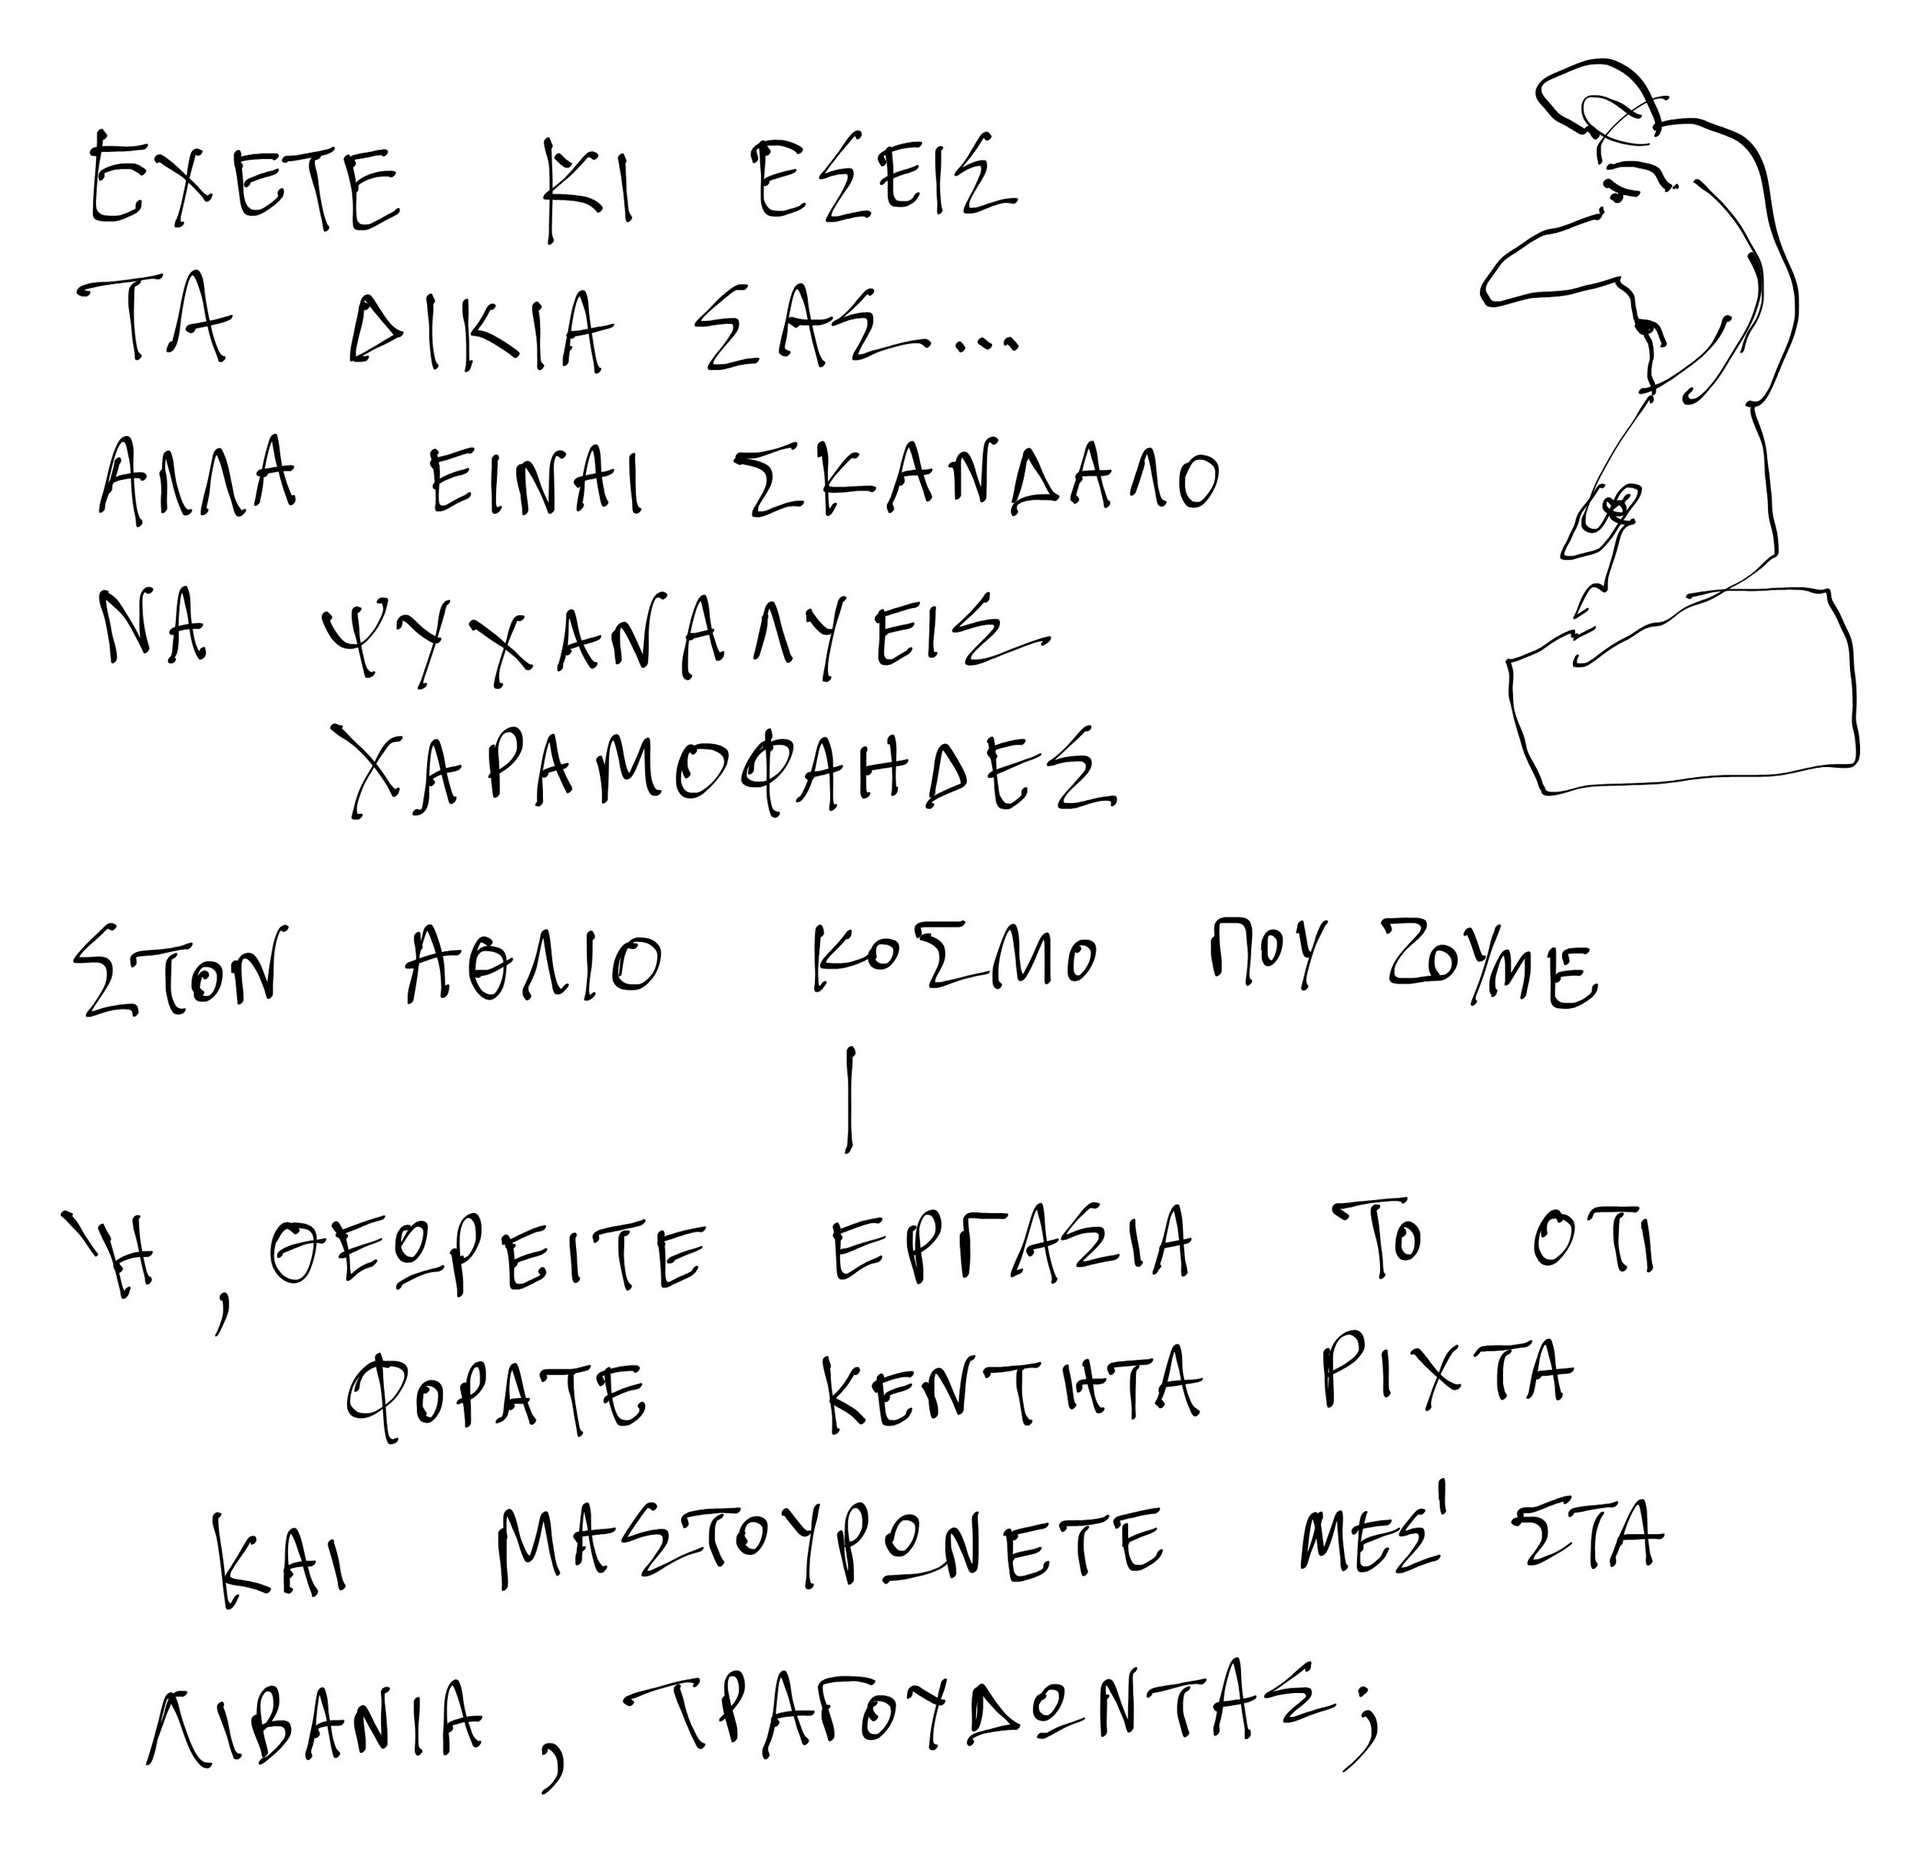 ΕΧΕΤΕ ΚΙ ΕΣΕΙΣ
ΤΑ ΔΙΚΙΑ ΣΑΣ...
ΑΛΛΑ ΕΙΝΑΙ ΣΚΑΝΔΑΛΟ
ΝΑ ΨΥΧΑΝΑΛΥΕΙΣ
ΧΑΡΑΜΟΦΑΗΔΕΣ
ΣΤΟΝ ΑΘΛΙΟ ΚΟΣΜΟ ΠΟΥ ΖΟΥΜΕ
|
Ή, ΘΕΩΡΕΙΤΕ ΕΡΓΑΣΙΑ ΤΟ ΟΤΙ
ΦΟΡΑΤΕ ΚΕΝΤΗΤΑ ΡΙΧΤΑ
ΚΑΙ ΜΑΣΤΟΥΡΩΝΕΤΕ ΜΕΣ' ΣΤΑ
ΛΙΒΑΝΙΑ, ΤΡΑΓΟΥΔΩΝΤΑΣ;